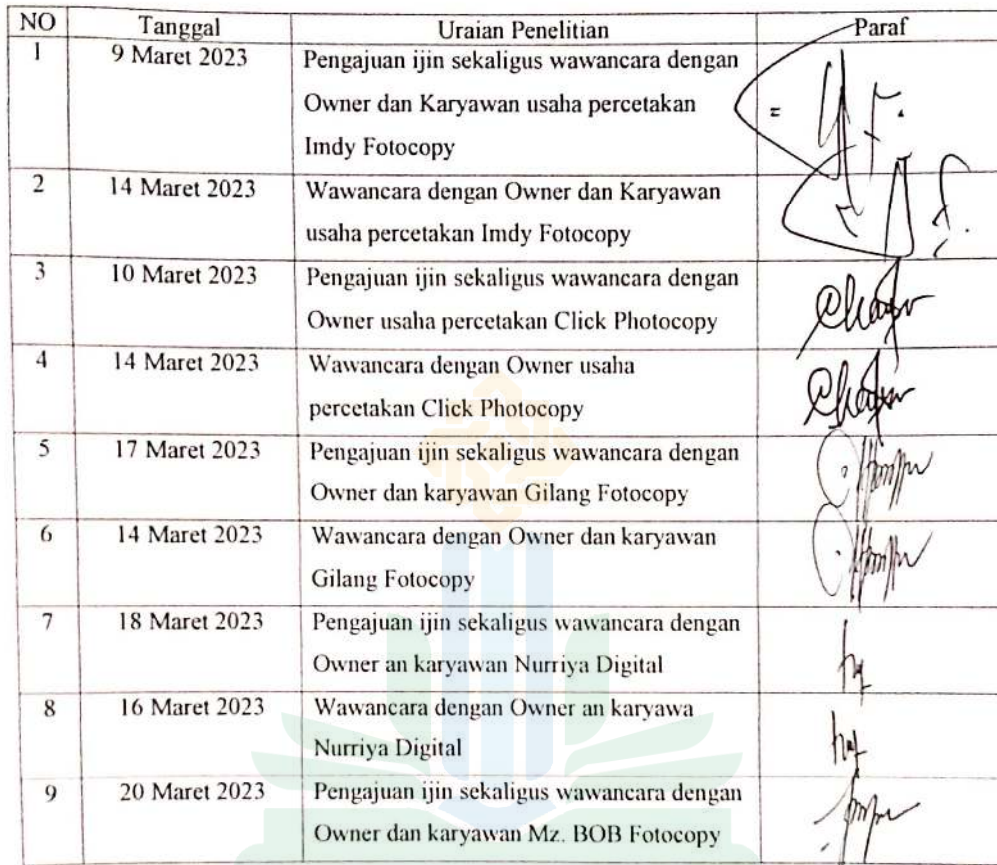 NO Tanggal Uraian Penelitian Paraf
1 9 Maret 2023 Pengajuan ijin sekaligus wawancara dengan
Owner dan Karyawan usaha percetakan
Imdy Fotocopy
2 14 Maret 2023 Wawancara dengan Owner dan Karyawan
usaha percetakan Imdy Fotocopy
3 10 Maret 2023 Pengajuan ijin sekaligus wawancara dengan
Owner usaha percetakan Click Photocopy
4 14 Maret 2023 Wawancara dengan Owner usaha
percetakan Click Photocopy
5 17 Maret 2023 Pengajuan ijin sekaligus wawancara dengan
Owner dan karyawan Gilang Fotocopy
6 14 Maret 2023 Wawancara dengan Owner dan karyawan
Gilang Fotocopy
7 18 Maret 2023 Pengajuan ijin sekaligus wawancara dengan
Owner an karyawan Nurriya Digital
8 16 Maret 2023 Wawancara dengan Owner an karyawa
Nurriya Digital
9 20 Maret 2023 Pengajuan ijin sekaligus wawancara dengan
Owner dan karyawan Mz. BOB Fotocopy